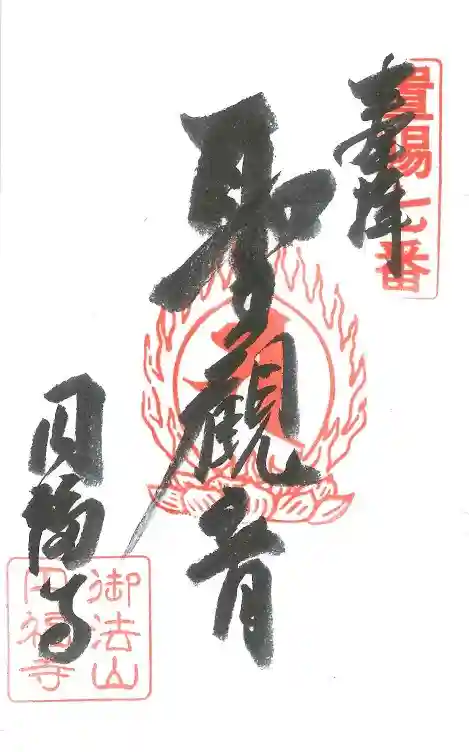 置賜七番
奉拝
聖観音
円福寺
御法山
円福寺